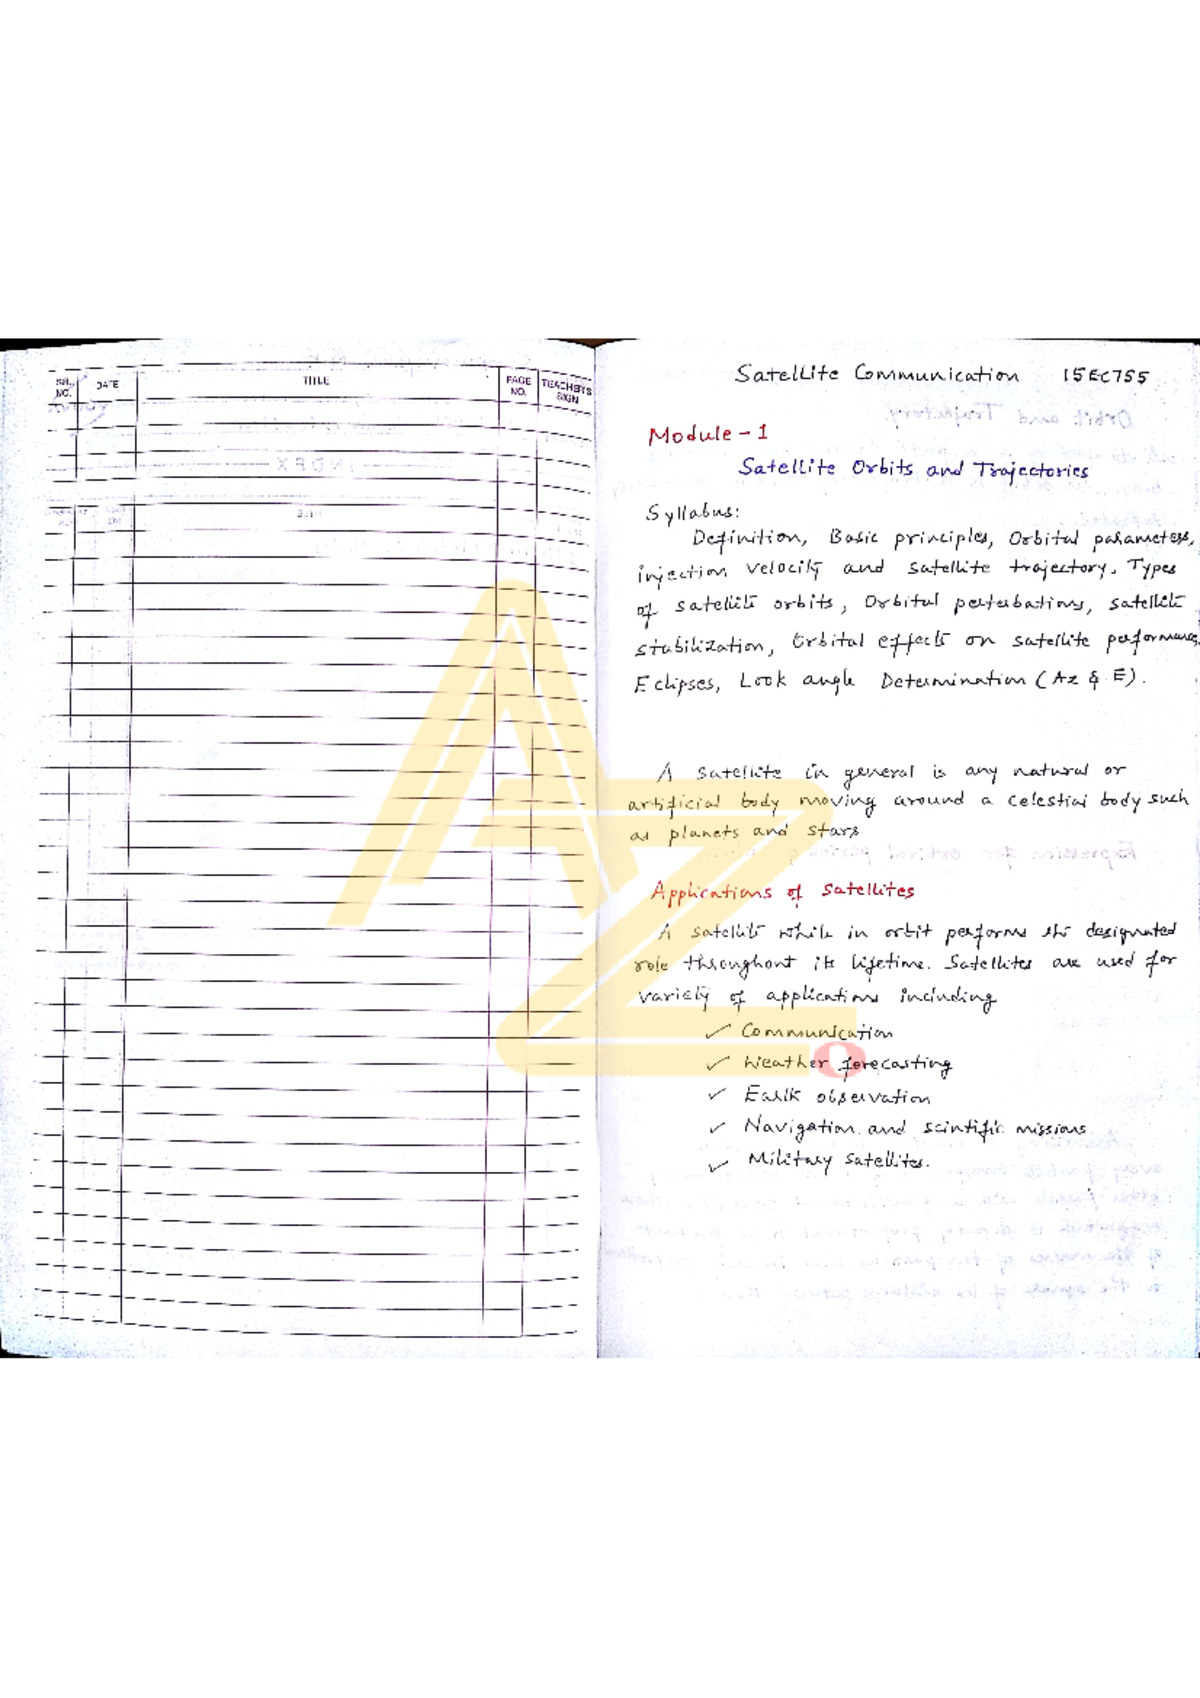 SR. NO.
DATE
TITLE
PAGE NO.
TEACHER'S SIGN
Satellite Communication 15EC755
Module - 1
Satellite Orbits and Trajectories
Syllabus:
Definition, Basic principles, Orbital parameters,
injection velocity and satellite trajectory, Types
of satellite orbits, Orbital perturbations, satellite
stabilization, Orbital effects on satellite performance,
Eclipses, Look angle Determination (Az & E).
A satellite in general is any natural or
artificial body moving around a celestial body such
as planets and stars
Applications of Satellites
A satellite while in orbit performs its designated
role throughout its lifetime. Satellites are used for
variety of applications including
✓ Communication
✓ Weather forecasting
✓ Earth observation
✓ Navigation and scintific missions
✓ Military satellites.
AZ
O